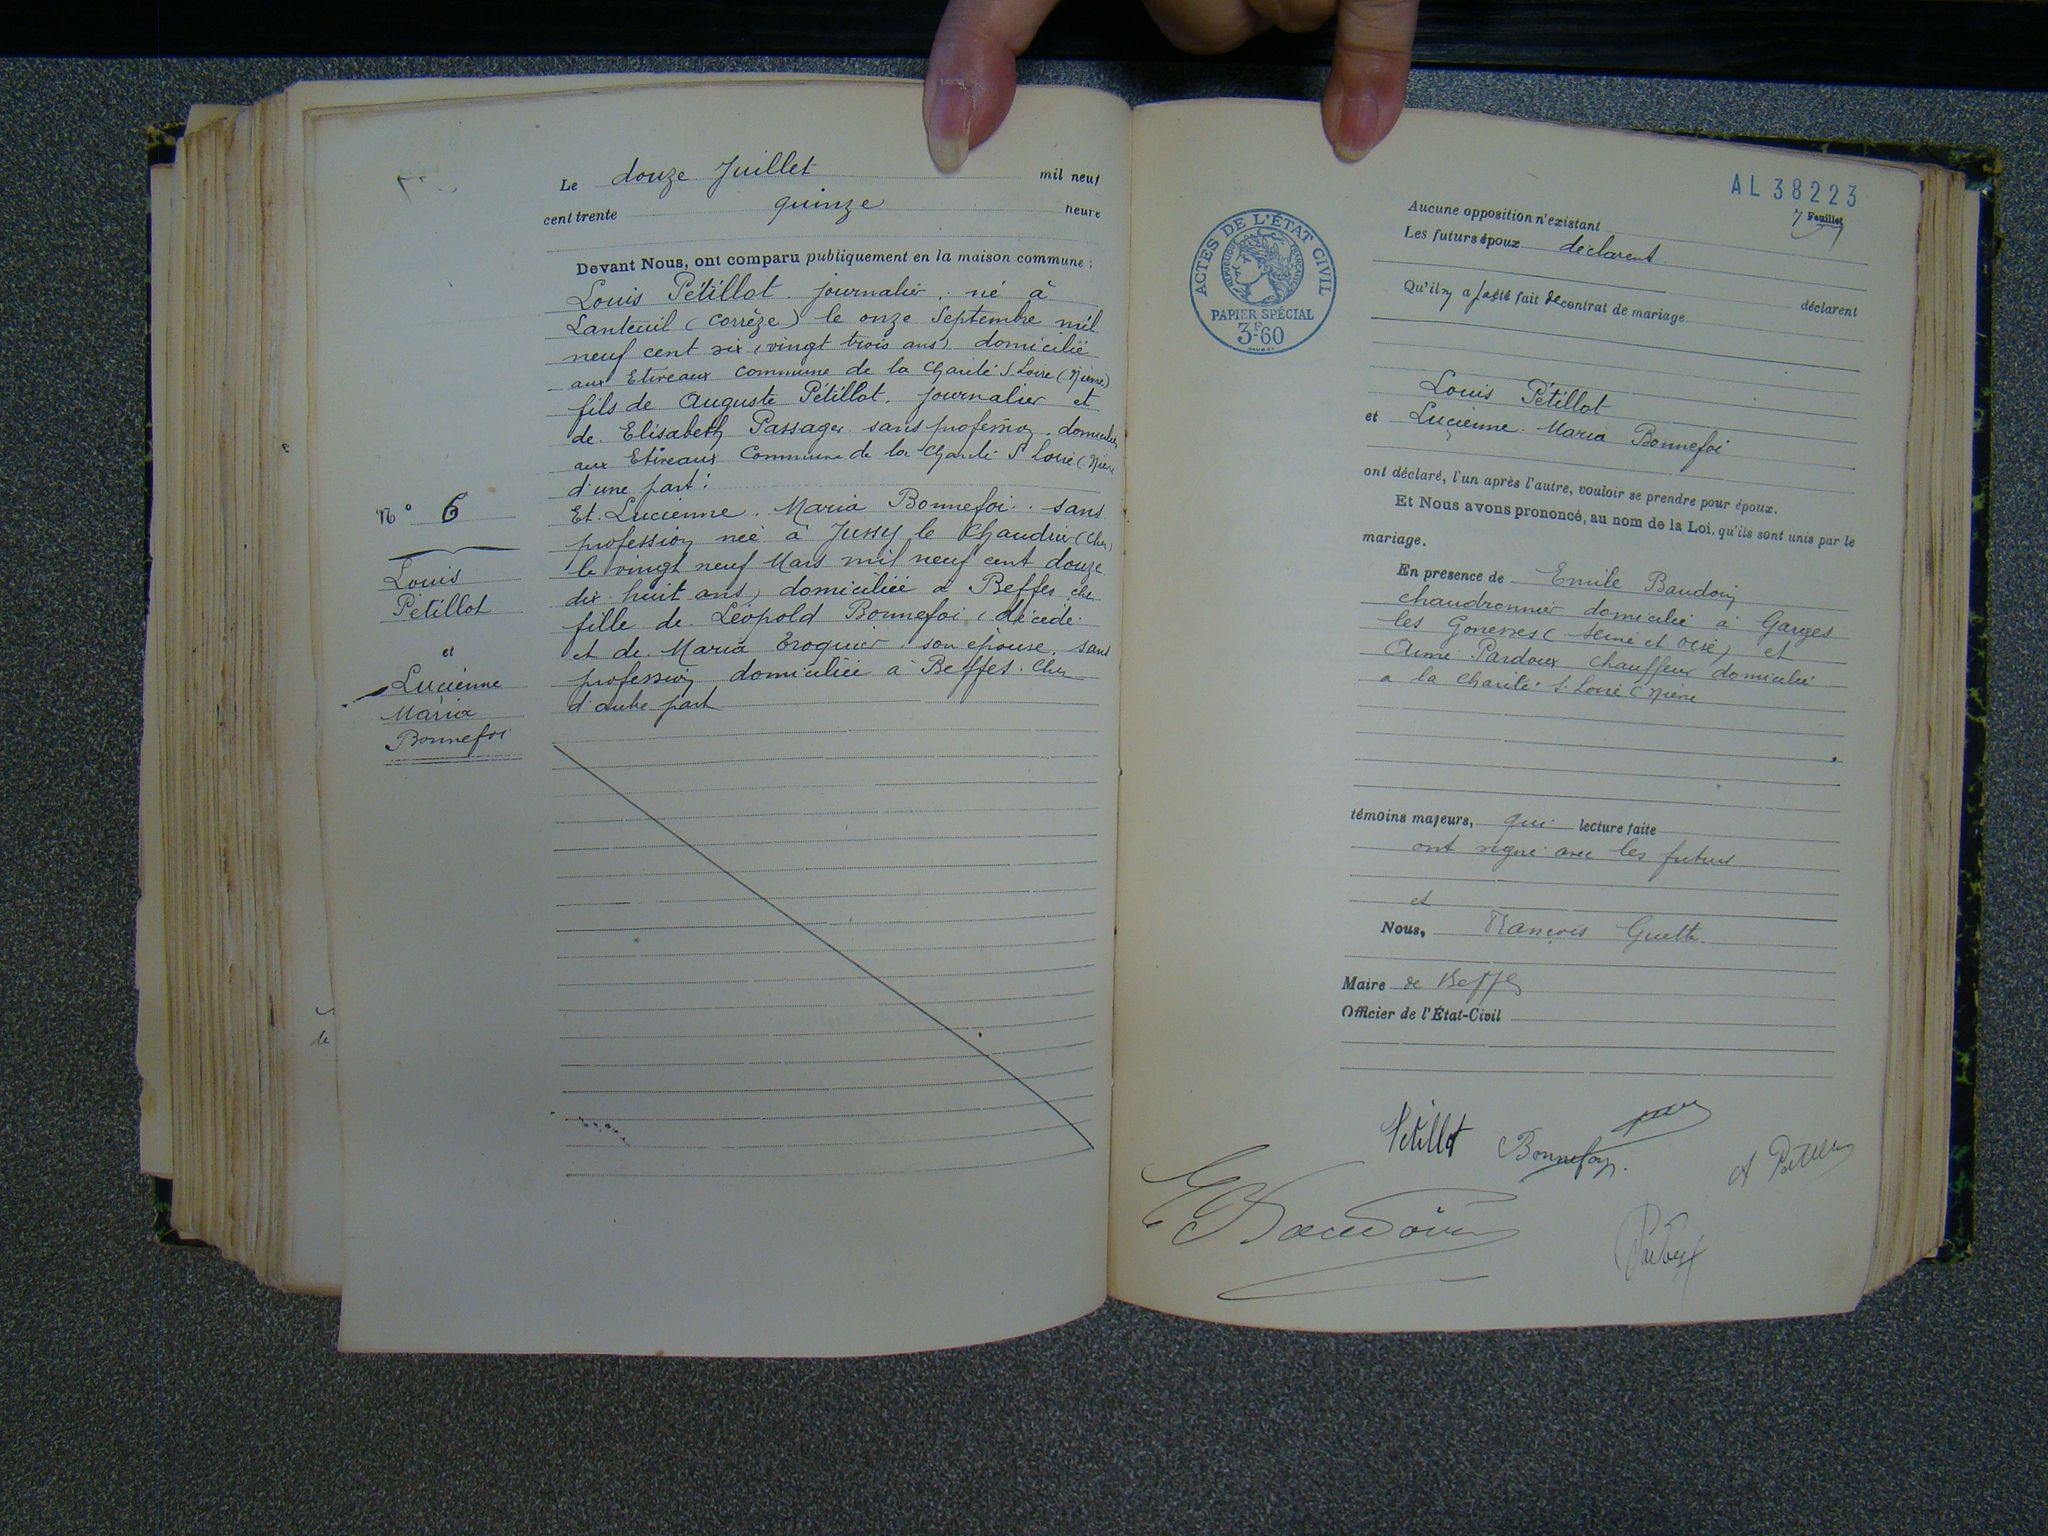 Le douze Juillet mil neuf
cent trente quinze heure
Devant Nous, ont comparu publiquement en la maison commune :
Louis Pétillot. journalier. né à
Lanteuil (Corrèze) le onze Septembre mil
neuf cent six (vingt trois ans) domicilié
aux Etiveaux commune de la Charité S Loire (Nièvre)
fils de Auguste Pétillot. journalier et
de Elisabeth Passager sans profession. domiciliés
aux Etiveaux Commune de la Charité S Loire (Nièvre
d'une part :
Et. Lucienne. Maria Bonnefoi. sans
profession née à Jussy le Chaudrier (Cher)
le vingt neuf Mars mil neuf cent douze
dix huit ans) domiciliée à Beffes Cher
fille de Léopold Bonnefoi, décédé.
et de Maria Troquier son épouse. sans
profession domiciliée à Beffes. Cher
d'autre part
N° 6
Louis
Pétillot
et
Lucienne
Maria
Bonnefoi
AL 38223
7 Feuillet
ACTES DE L'ÉTAT CIVIL
RÉPUBLIQUE FRANÇAISE
PAPIER SPÉCIAL
3F60
Aucune opposition n'existant
Les futurs époux déclarent
Qu'il n'y a pas été fait de contrat de mariage déclarent
Louis Pétillot
et Lucienne. Maria Bonnefoi
ont déclaré, l'un après l'autre, vouloir se prendre pour époux.
Et Nous avons prononcé, au nom de la Loi, qu'ils sont unis par le
mariage.
En présence de Emile Baudoin
chaudronnier domicilié à Garges
les Gonesses (Seine et Oise) et
Aimé Pardoux chauffeur domicilié
a la Charité S. Loire (Nièvre
témoins majeurs, qui lecture faite
ont signé avec les futurs
et
Nous, François Guette
Maire de Beffes
Officier de l'État-Civil
Pétillot Bonnefoy
E Baudoin